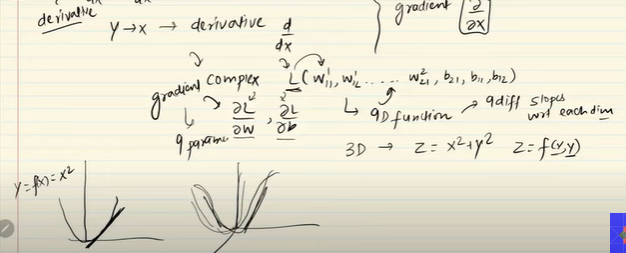 derivative
Y → x → derivative d/dx
gradient [∂/∂x]
gradient complex L(w¹₁₁, w¹₁₂ ..... w²₂₁, b₂₁, b₁₁, b₁₂)
9 params ∂L/∂w, ∂L/∂b
↳ 9D function → 9 diff slopes
wrt each dim
3D → z = x²+y² z = f(x,y)
y = f(x) = x²